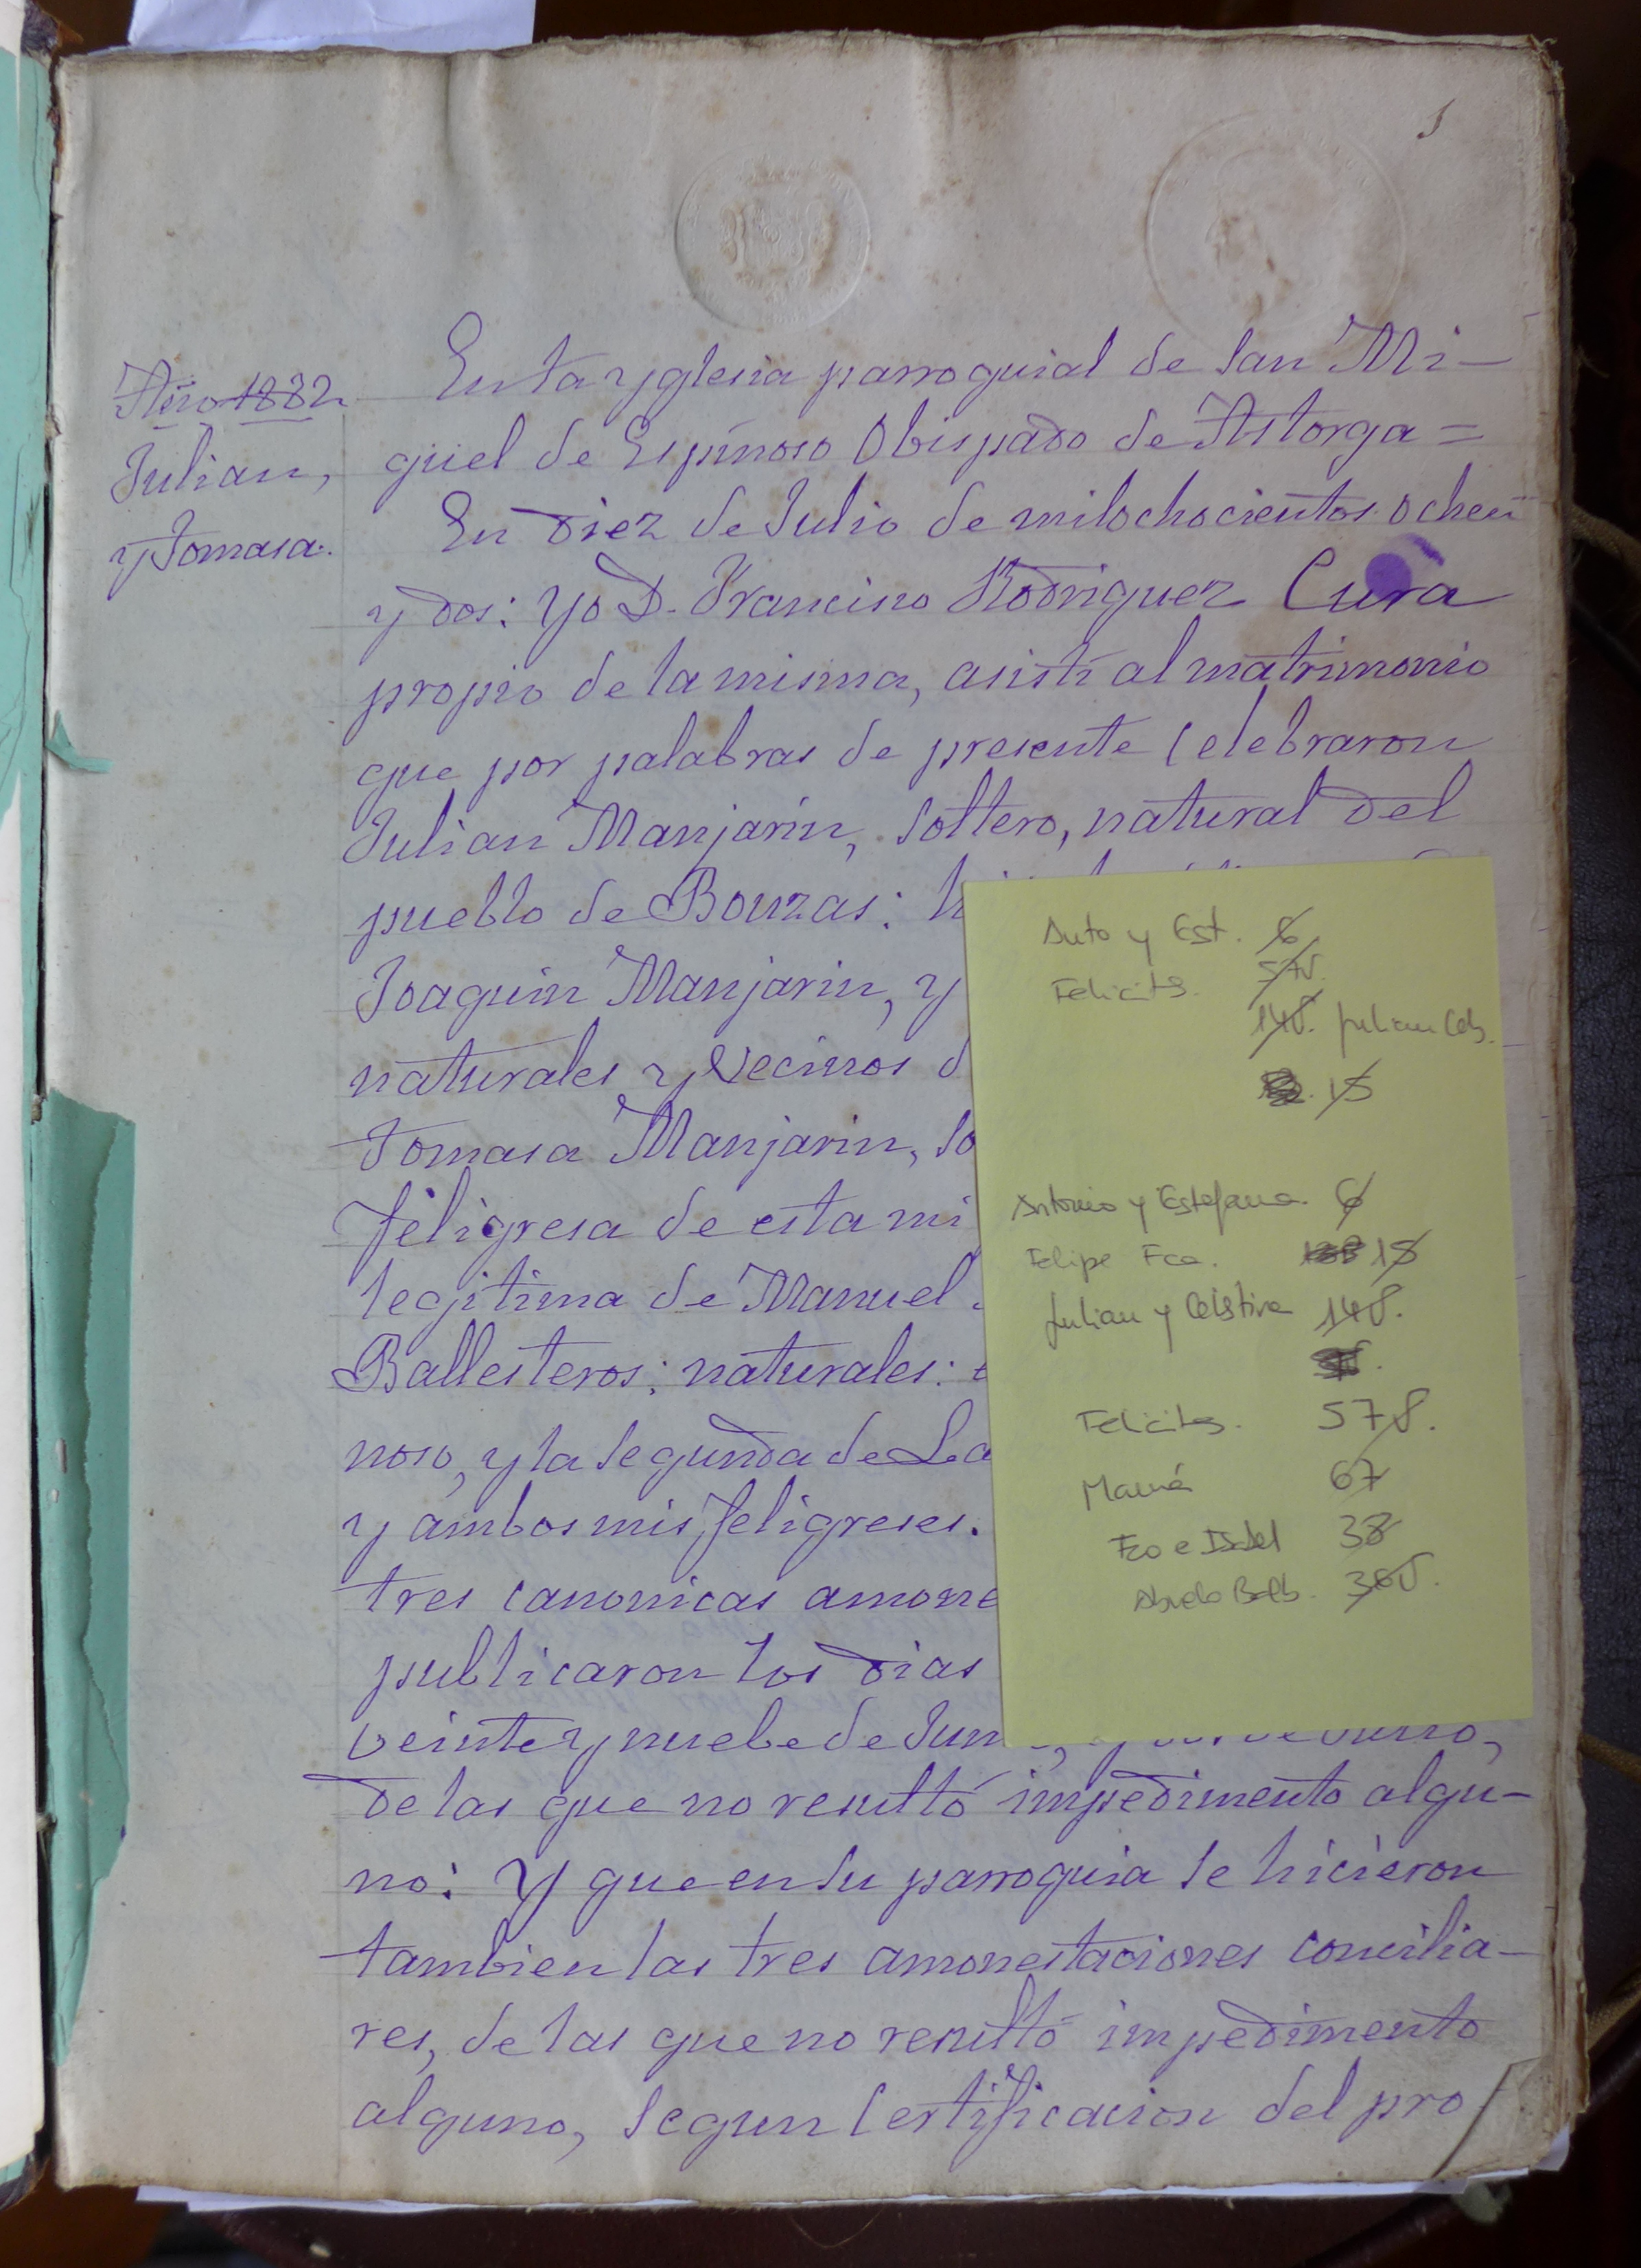 1
Año 1882
Julian,
y Tomasa.
En la yglesia parroquial de San Mi-
guel de Espinoso Obispado de Astorga =
En diez de Julio de milochocientos ochen
y dos: yo D. Francisco Rodriguez Cura
propio de la misma, asistí al matrimonio
que por palabras de presente Celebraron
Julian Manjarín, Soltero, natural del
pueblo de Bouzas:
Joaquin Manjarin, y
naturales y vecinos d
Tomasa Manjarin, So
feligresa de esta mi
legitima de Manuel
Ballesteros; naturales:
noso, y la Segunda de La
y ambos mis feligreses.
tres canonicas amone
publicaron los dias
veinte y nuebe de Jun
de las que no resultó impedimento algu-
no: Y que en su parroquia se hicieron
tambien las tres amonestaciones concilia-
res, de las que no resultó impedimento
alguno, Segun Certificacion del pro
Anto y Est. 6
Felicitas. 57V.
14V. Julian Cels.
15
Antonio y Estefana. 6
Felipe Fca. 15
Julian y Celstina 14V.
Felicitas. 57V.
Mamá 67
Fco e Isabel 38
Abuelo Balb. 36V.